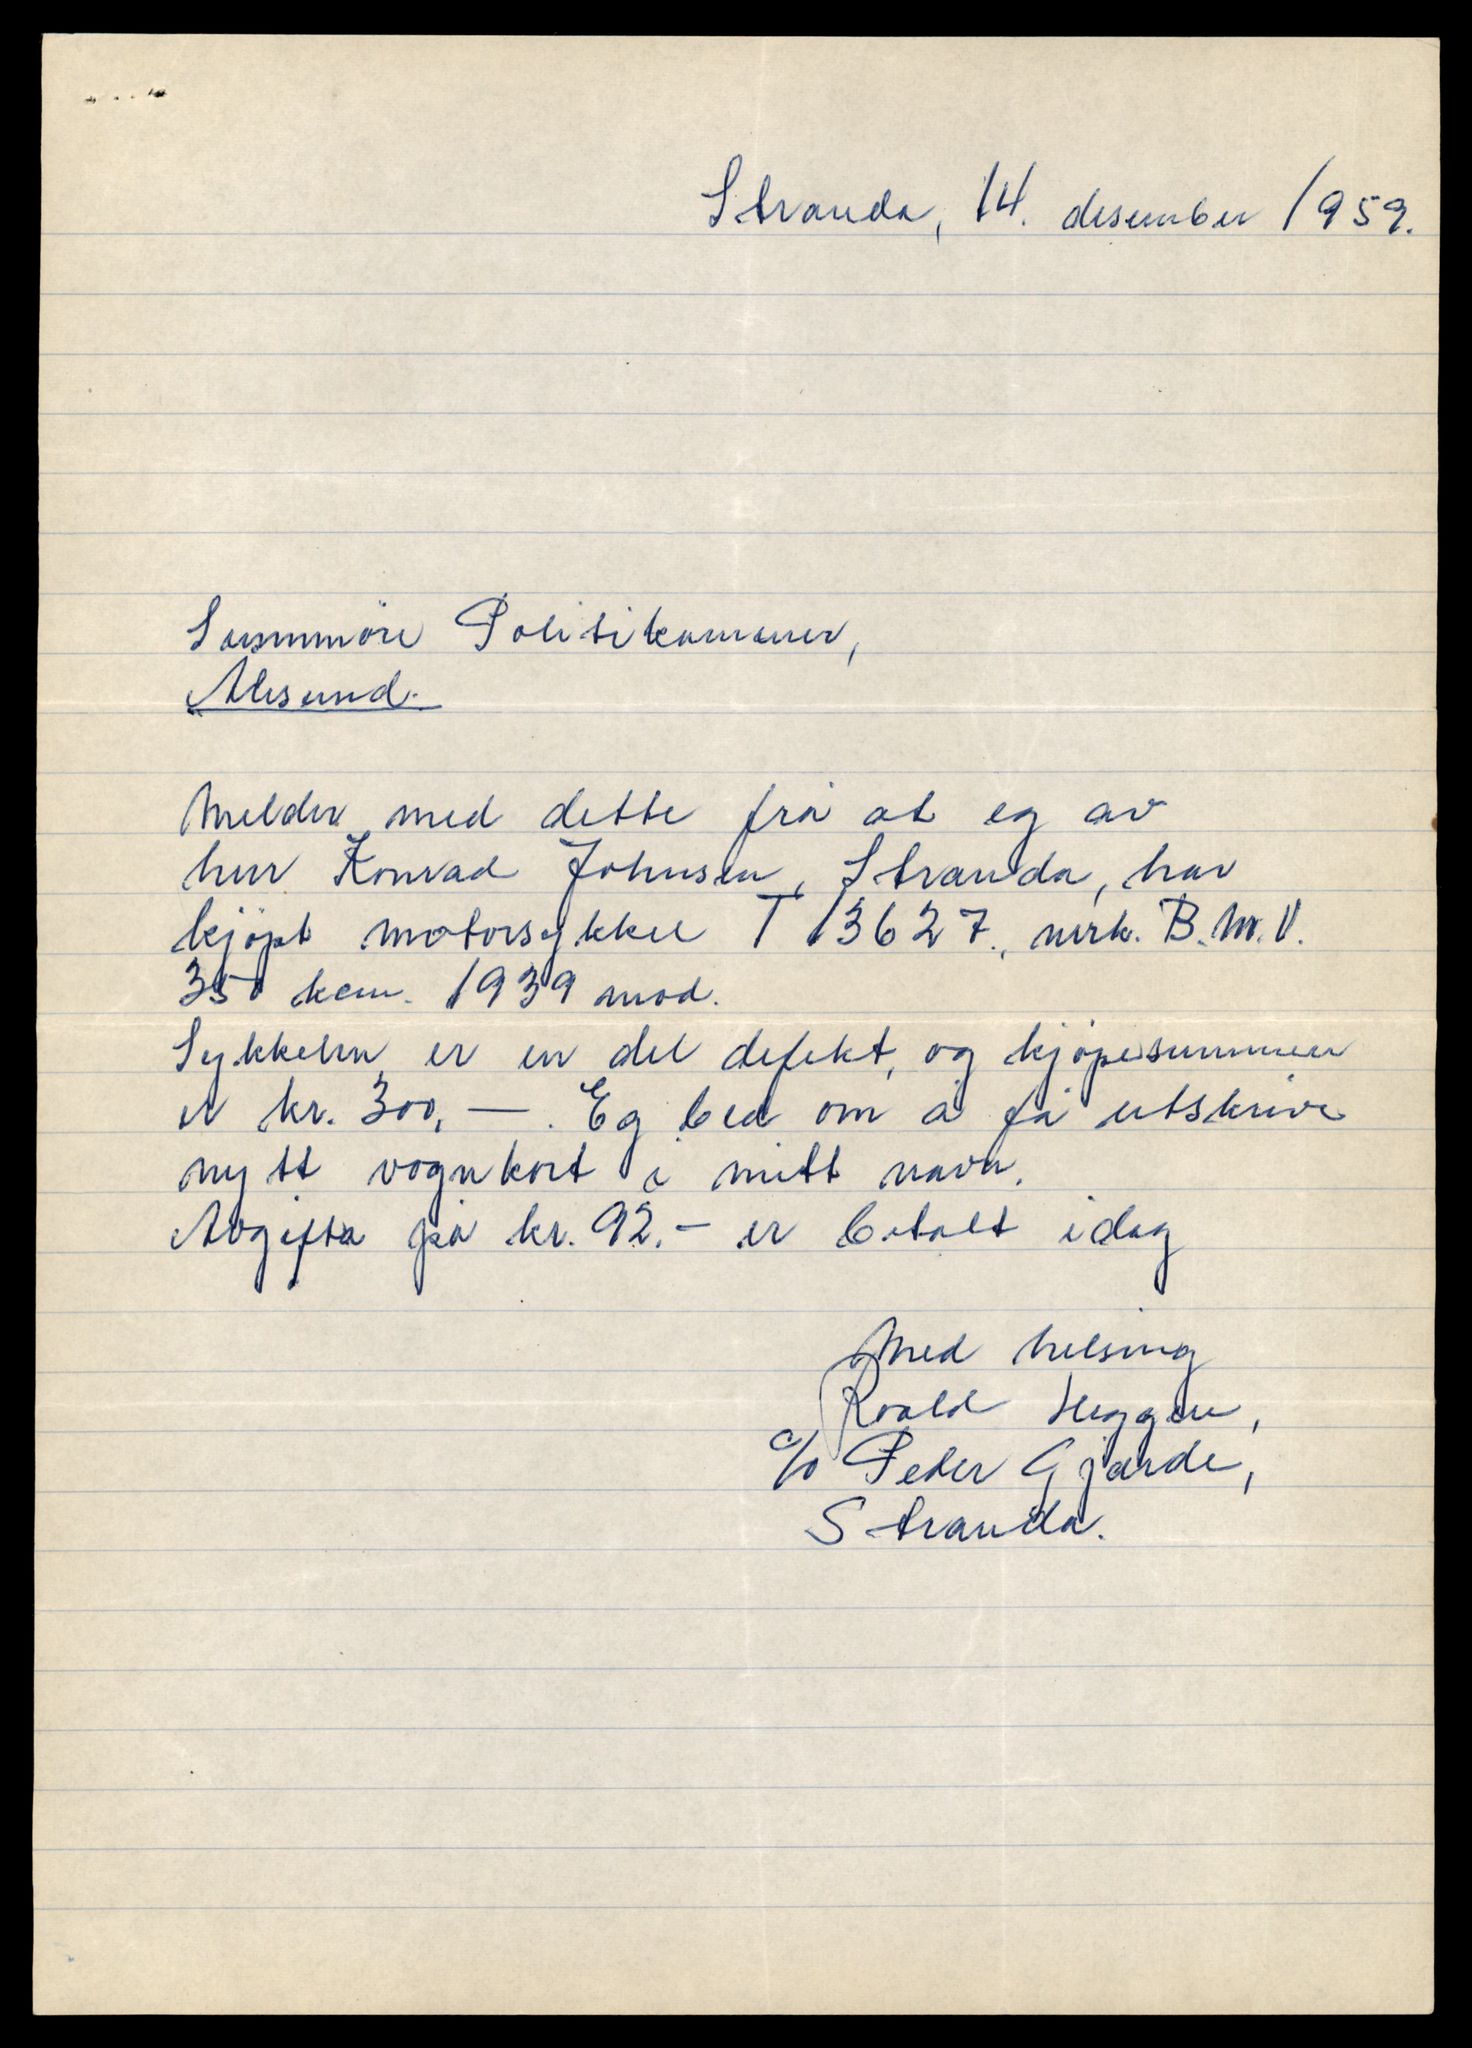 Stranda, 14. desember 1959.
Sunnmöre Politikammer,
Ålesund.
Melder med dette frå at eg av
herr Konrad Johnsen, Stranda, har
kjøpt motorsykkel T 13627., merk. B.M.V.
350 kcm. 1939 mod.
Sykkelen er en del defekt, og kjøpesummen
er kr. 300,—. Eg bed om å få utskrive
nytt vognkort i mitt navn.
Avgifta på kr. 92.- er betalt idag
Med helsing
Roald Heggen,
c/o Peder Gjærde,
Stranda.